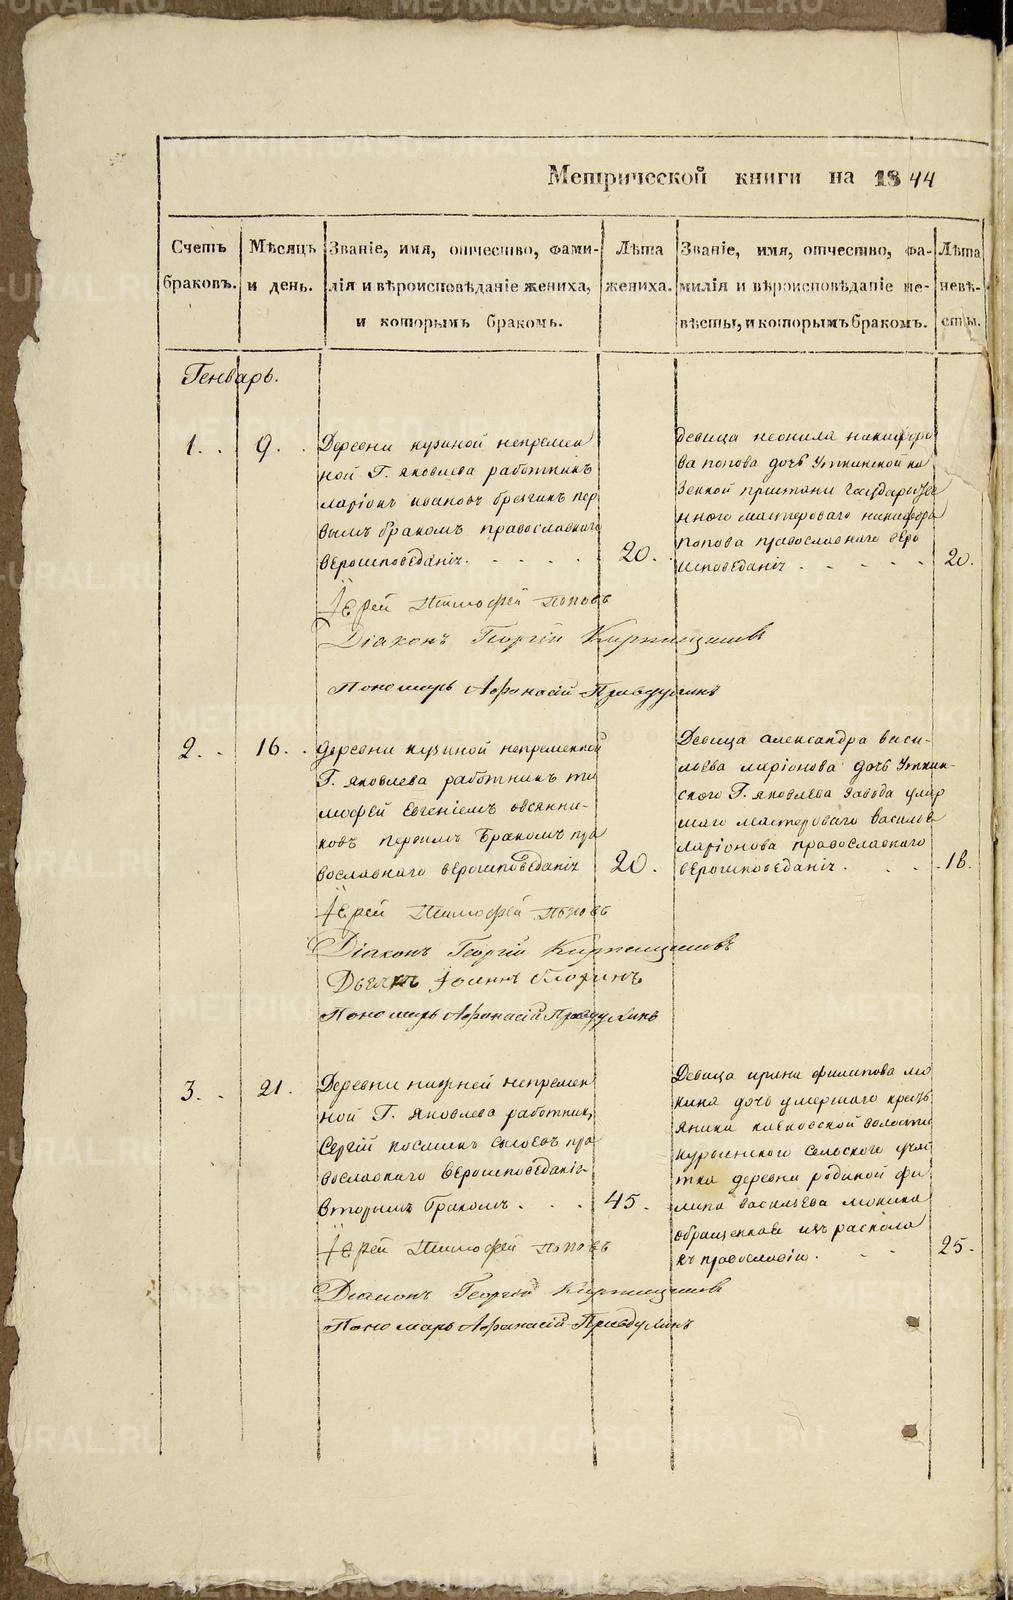 Метрической книги на 1844
Счетъ браковъ.
Мѣсяцъ и день.
Званіе, имя, отчество, фами-
лія и вѣроисповѣданіе жениха,
и которымъ бракомъ.
Лѣта жениха.
Званіе, имя, отчество, фа-
милія и вѣроисповѣданіе не-
вѣсты, и которымъ бракомъ.
Лѣта невѣ-
сты.
Генварь.
1. 9.
Деревни кузиной непремен
ной Г. яковлева работникъ
ларіонъ ивановъ пер
вымъ бракомъ православнаго
вероисповеданія.
20.
девица неонила никифоро
ва попова дочь Уткинской ка
зенной пристани государстве
ннаго мастероваго никифора
попова православнаго веро
исповеданія
20.
Іерей Тимофей Поповъ
Діаконъ Георгій
Пономарь Афанасій Правдухинъ
2. 16.
деревни кузиной непременной
Г. яковлева работникъ ти
мофей Евгеніевъ овсянни-
ковъ первымъ Бракомъ пра
вославнаго вероисповеданія
20.
Девица александра васи-
льева ларіонова дочь Уткин-
скаго Г. яковлева завода умер
шаго мастероваго василья
ларіонова православнаго
вероисповеданія.
18.
Іерей Тимофей Поповъ
Діаконъ Георгій
Дьячкъ Іоаннъ
Пономарь Афанасій Правдухинъ
3. 21.
Деревни нижней непремен
ной Г. яковлева работник,
Сергій космин сысоевъ пра
вославнаго вероисповеданія
вторымъ Бракомъ.
45.
Девица ирина филипова мо
кина дочь умершаго кресть
янина волости
курьинского сельского учас
тка деревни родиной фи
липа васильева мокина
обращенная изъ раскола
къ православію.
25.
Іерей Тимофей Поповъ
Діаконъ Георгій
Пономарь Афанасій Правдухинъ
METRIKI.GASO-URAL.RU